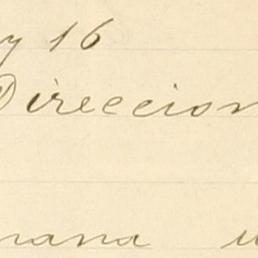 y 16
Direccion
mana u